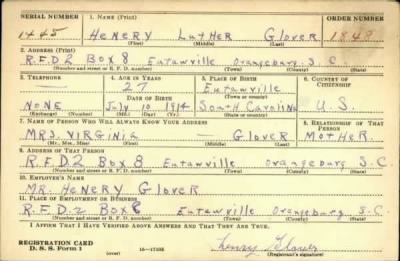 SERIAL NUMBER 1. NAME (Print) ORDER NUMBER
1445 HENERY LUTHER GLOVER 1849
(First) (Middle) (Last)
2. ADDRESS (Print)
R.F.D 2 BOX 8 Eutawville Orangeburg S.C.
(Number and street or R. F. D. number) (Town) (County) (State)
3. TELEPHONE 4. AGE IN YEARS 5. PLACE OF BIRTH 6. COUNTRY OF CITIZENSHIP
— 27 Eutawville
DATE OF BIRTH (Town or county)
NONE July 10 1914 South Carolina U.S.
(Exchange) (Number) (Mo.) (Day) (Yr.) (State or country)
7. NAME OF PERSON WHO WILL ALWAYS KNOW YOUR ADDRESS 8. RELATIONSHIP OF THAT PERSON
MRS. VIRGINIA — GLOVER MOTHER
(Mr., Mrs., Miss) (First) (Middle) (Last)
9. ADDRESS OF THAT PERSON
R.F.D.2 BOX 8 Eutawville Orangeburg S.C
(Number and street or R. F. D. number) (Town) (County) (State)
10. EMPLOYER'S NAME
MR. HENERY GLOVER
11. PLACE OF EMPLOYMENT OR BUSINESS
R.F.D.2 BOX 8 Eutawville Orangeburg S.C.
(Number and street or R. F. D. number) (Town) (County) (State)
I AFFIRM THAT I HAVE VERIFIED ABOVE ANSWERS AND THAT THEY ARE TRUE.
REGISTRATION CARD
D. S. S. Form 1 (over) Henry Glover
(Registrant's signature)